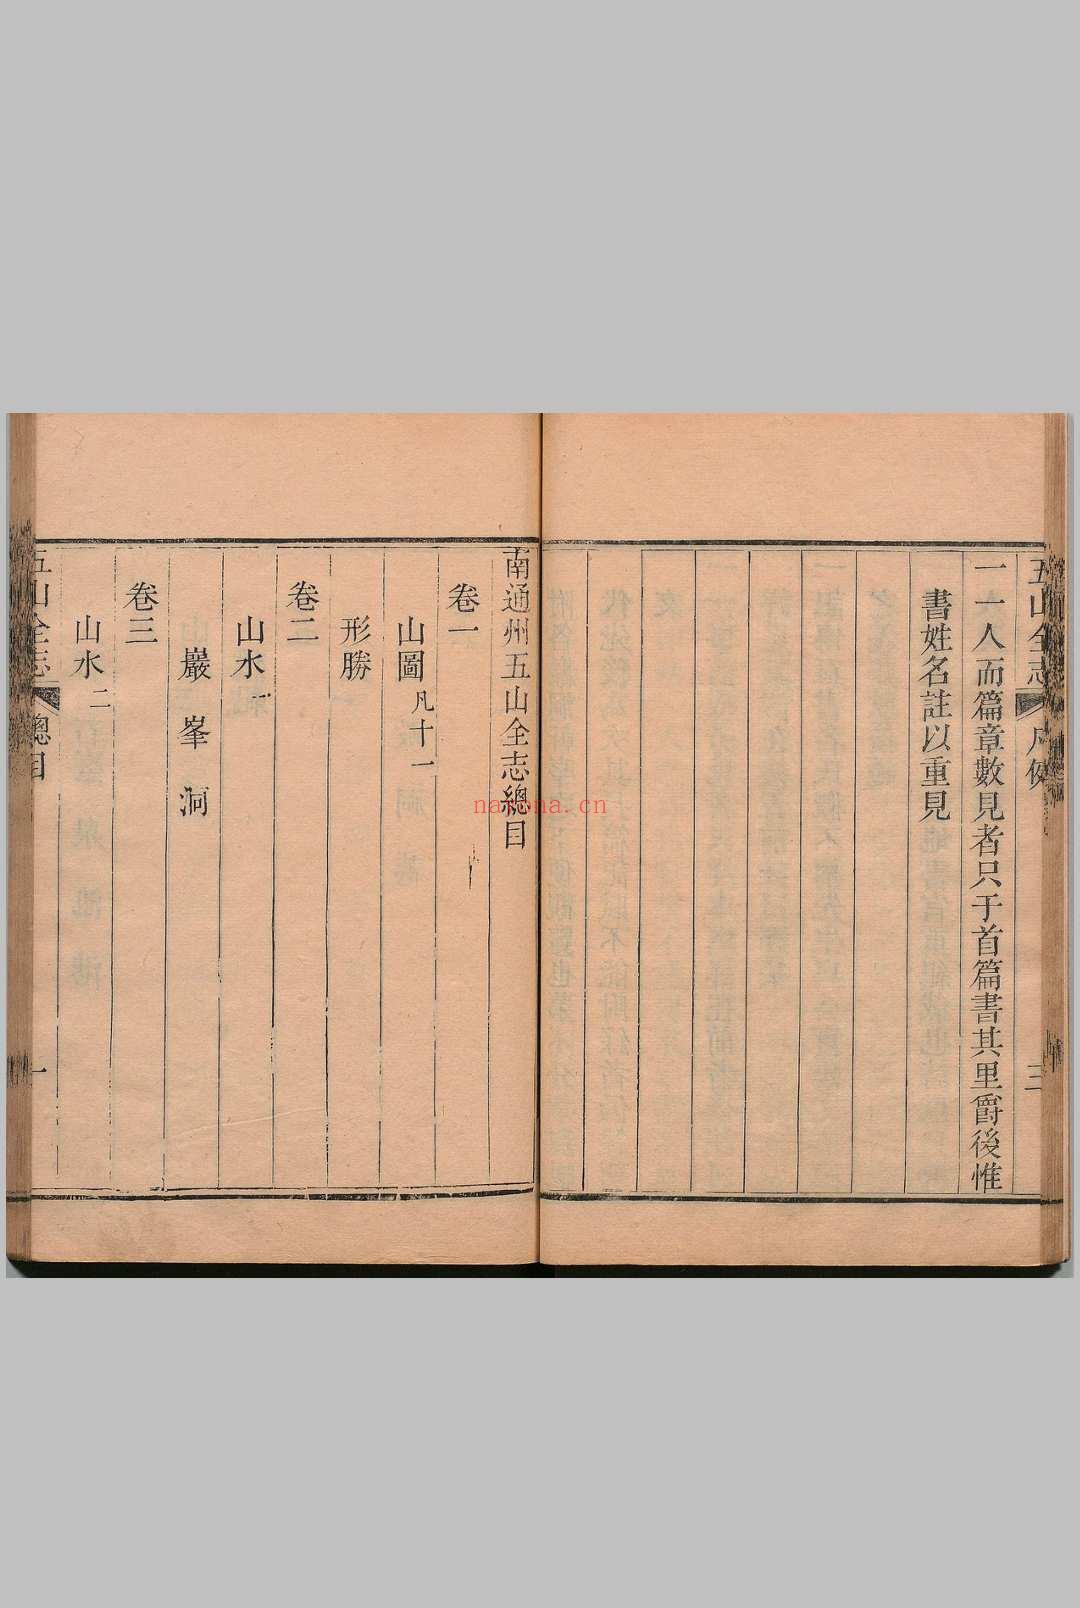 五山全志
凡例
三
一一人而篇章數見者只于首篇書其里爵後惟
書姓名註以重見
南通州五山全志總目
卷一
山圖凡十一
形勝
卷二
山水一
山巖 峯 洞
卷三
山水二
五山全志
總目
一
nayona.cn